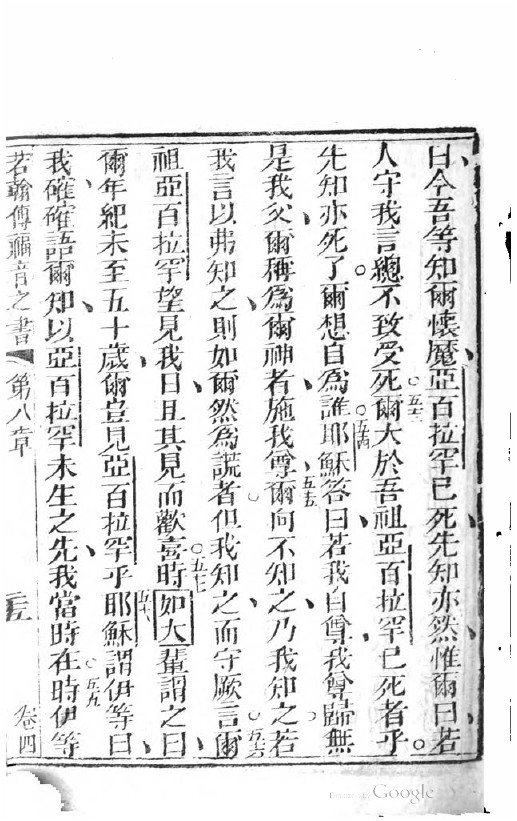 曰今吾等知爾懷魔亞百拉罕已死先知亦然惟爾曰若
人守我言總不致受死五三爾大於吾祖亞百拉罕已死者乎
先知亦死了爾想自爲誰五四耶穌答曰若我自尊我尊歸無
是我父爾稱爲爾神者施我尊五五爾向不知之乃我知之若
我言以弗知之則如爾然爲謊者但我知之而守厥言五六爾
祖亞百拉罕望見我日且其見而歡喜時五七如大輩謂之曰
爾年紀未至五十歲爾豈見亞百拉罕乎五八耶穌謂伊等曰
我確確語爾知以亞百拉罕未生之先我當時在五九時伊等
若翰傳福音之書 第八章 二五 卷四
Google